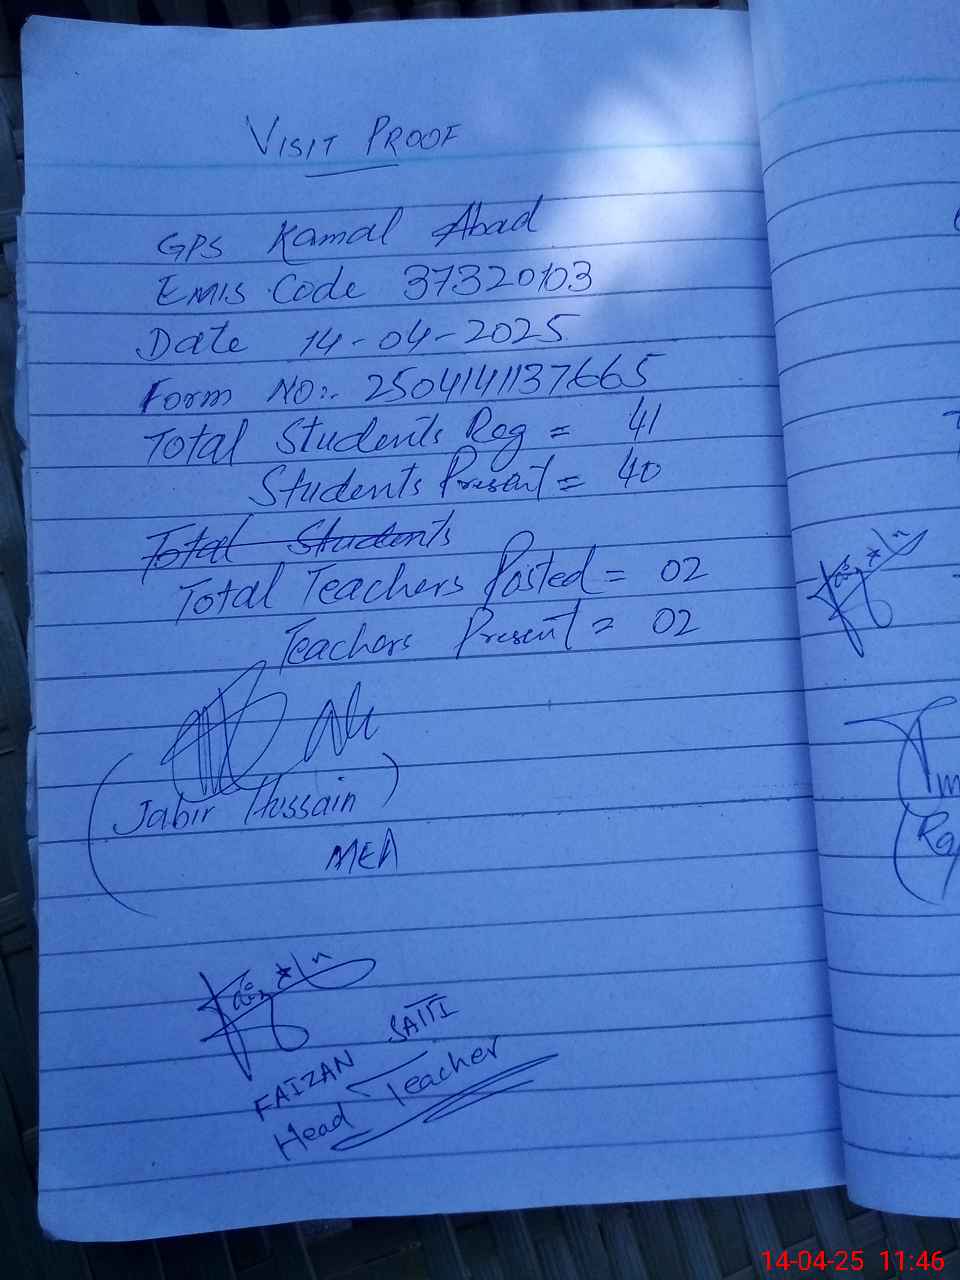 VISIT PROOF
GPS Kamal Abad
EMIS Code 37320103
Date 14-04-2025
Form NO:. 2504141137665
Total Students Reg = 41
Students Present = 40
Total Students
Total Teachers Posted = 02
Teachers Present = 02
(Jabir Hussain)
MEA
FAIZAN SATTI
Head Teacher
14-04-25 11:46